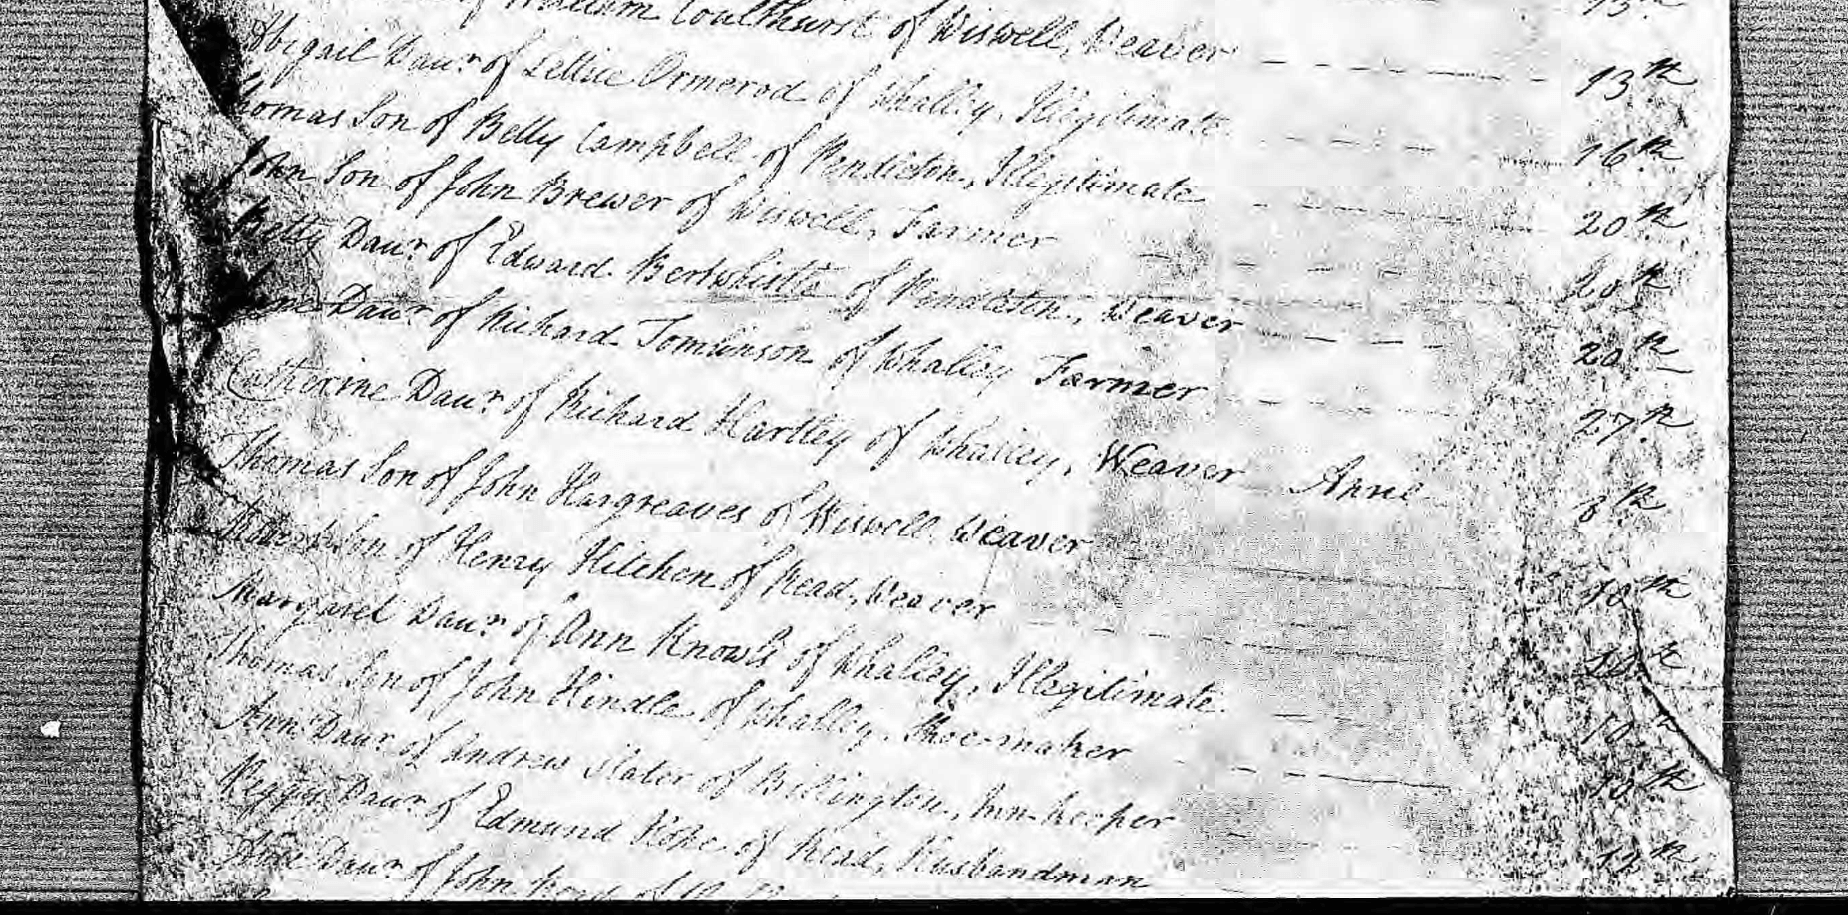 13th
William Coulthurst of Wiswell, Weaver 13th
Abigail Daur. of Lettice Ormerod of Whalley, Illegitimate 16th
Thomas Son of Betty Campbell of Pendleton, Illegitimate 20th
John Son of John Brewer of Wiswell, Farmer 20th
Betty Daur. of Edward Bertwhistle of Pendleton, Weaver 20th
Daur. of Richard Tomlinson of Whalley Farmer 27th
Catherine Daur. of Richard Hartley of Whalley, Weaver Anne 8th
Thomas Son of John Hargreaves of Wiswell Weaver 10th
Son of Henry Hitchen of Read, Weaver
Margaret Daur. of Ann Knowls of Whalley, Illegitimate 10th
Thomas Son of John Hindle of Whalley, Shoe-maker 13th
Ann Daur. of Andrew Slater of Billington, Inn-keeper 13th
Peggy Daur. of Edmund Pope of Read, Husbandman
Daur. of John